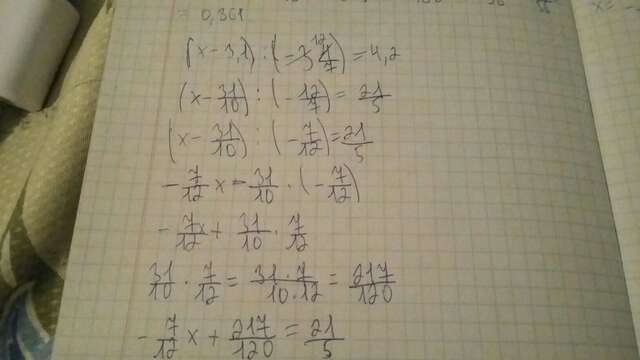 = 0,361
(x - 3,1) : (-3 12/7) = 4,2
(x - 31/10) : (- 12/7) = 21/5
(x - 31/10) : (- 7/12) = 21/5
- 7/12 x - 31/10 · (- 7/12)
- 7/12 x + 31/10 · 7/12
31/10 · 7/12 = 31 · 7/10 · 12 = 217/120
- 7/12 x + 217/120 = 21/5